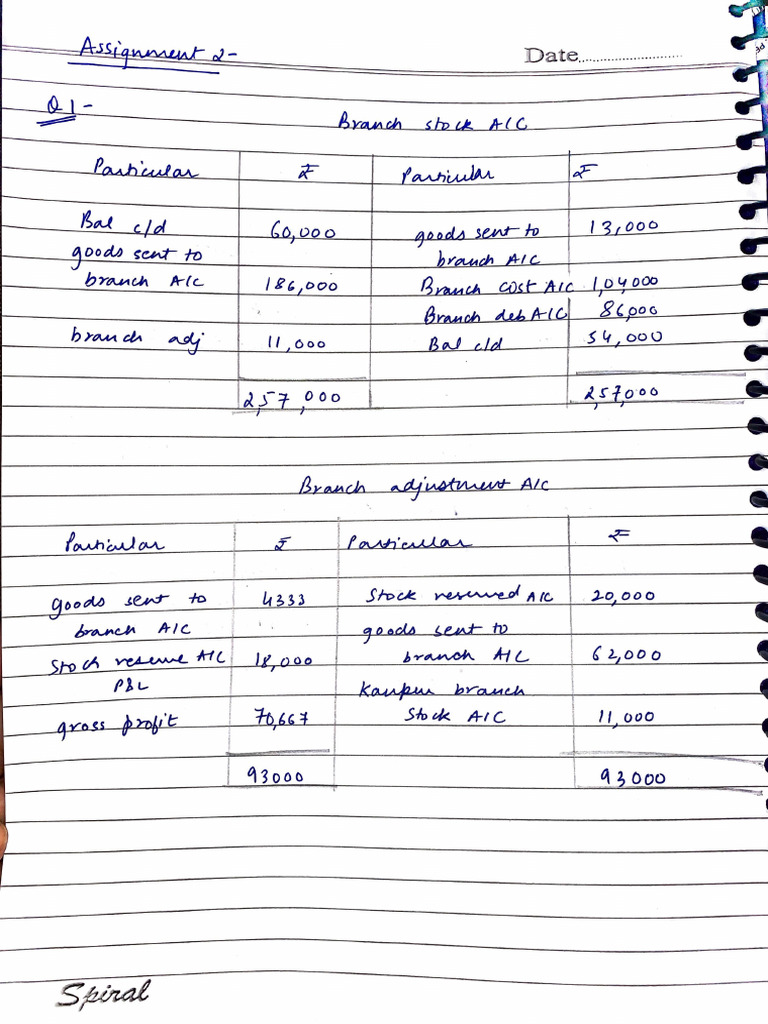 Assignment 2-
Date
Q1-
Branch stock A/C
Particular ₹ Particular ₹
Bal c/d 60,000 goods sent to 13,000
goods sent to branch A/C
branch A/C 186,000 Branch cost A/C 1,04,000
Branch deb A/C 86,000
branch adj 11,000 Bal c/d 54,000
2,57,000 257,000
Branch adjustment A/C
Particular ₹ Particular ₹
goods sent to 4333 Stock reserved A/C 20,000
branch A/C goods sent to
Stock reserve A/C 18,000 branch A/C 62,000
P&L Kanpur branch
gross profit 70,667 Stock A/C 11,000
93000 93000
Spiral